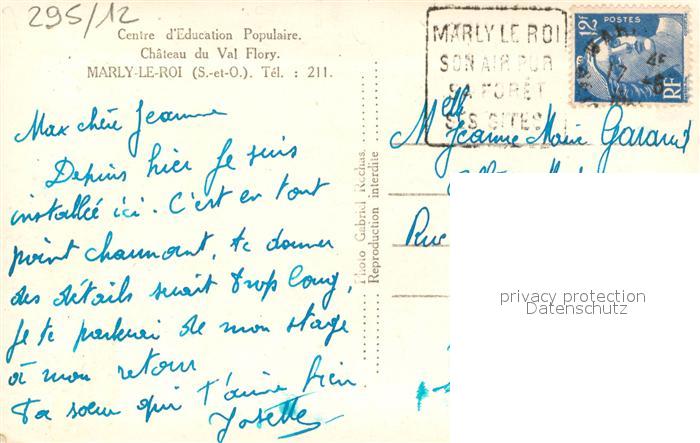 295/12
Centre d'Education Populaire.
Château du Val Flory.
MARLY-LE-ROI (S.-et-O.). Tél. : 211.
MARLY LE ROI
SON AIR PUR
SA FORÊT
SES GITES
12F POSTES
RF
Max chère Jeanne
Depuis hier je suis
installée ici. C'est en tout
point charmant, te donner
des détails serait trop long,
je te parlerai de mon stage
à mon retour
Ta soeur qui t'aime bien
Josette
Photo Gabriel Rochas.
Reproduction interdite
Melle Jeanne Marie Garaud
Rue
privacy protection
Datenschutz